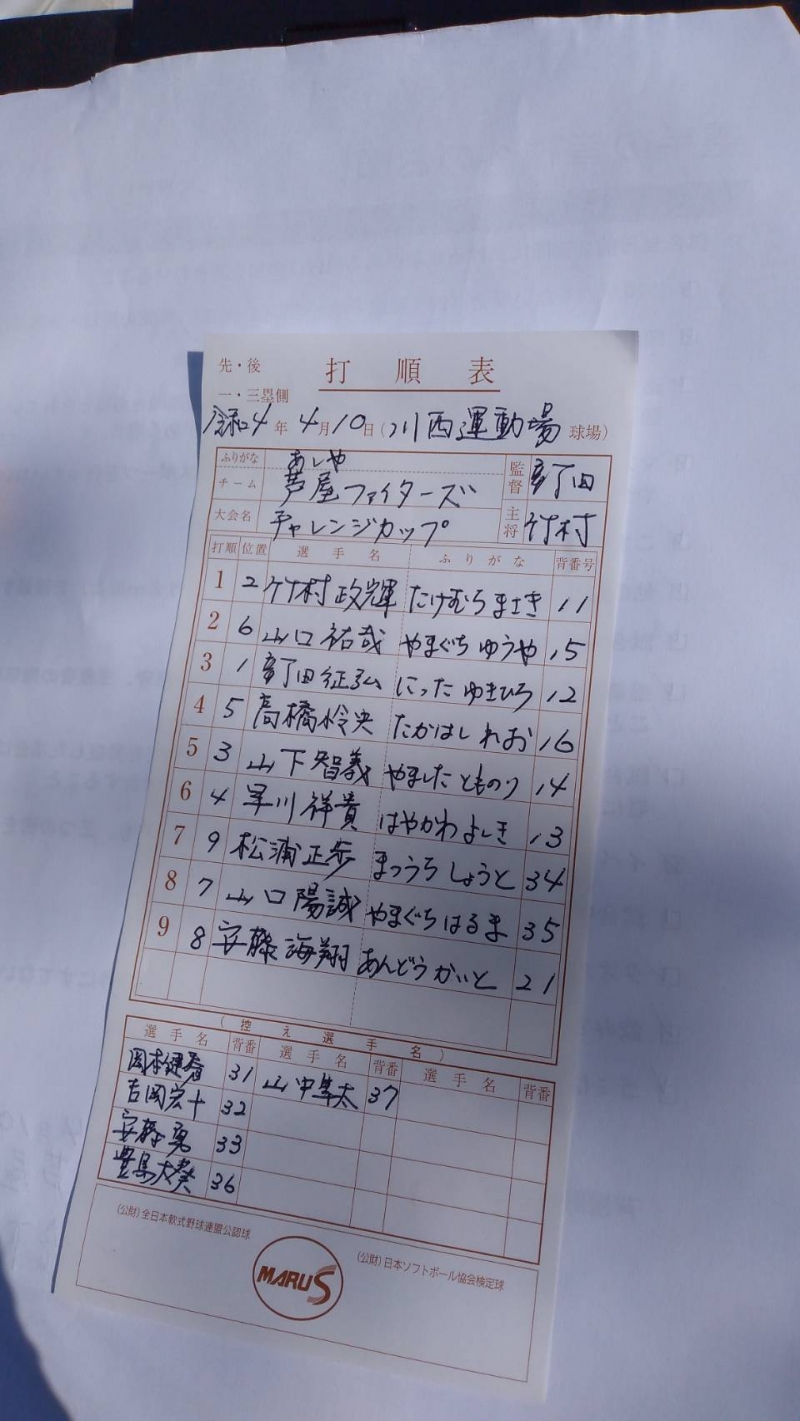 先・後 打順表
一・三塁側
令和4年4月10日(川西運動場球場)
ふりがな あしや
チーム 芦屋ファイターズ 監督 新田
大会名 チャレンジカップ 主将 竹村
打順 位置 選手名 ふりがな 背番号
1 2 竹村政輝 たけむらまさき 11
2 6 山口祐哉 やまぐちゆうや 15
3 1 新田征弘 にったゆきひろ 12
4 5 高橋怜央 たかはしれお 16
5 3 山下智義 やましたとものり 14
6 4 早川祥貴 はやかわよしき 13
7 9 松浦正歩 まつうらしょうと 34
8 7 山口陽誠 やまぐちはるま 35
9 8 安藤海翔 あんどうかいと 21
(控え選手名)
選手名 背番 選手名 背番 選手名 背番
岡本健春 31 山中隼太 37
吉岡宏十 32
安藤勇 33
豊島大葵 36
(公財)全日本軟式野球連盟公認球
MARU S
(公財)日本ソフトボール協会検定球